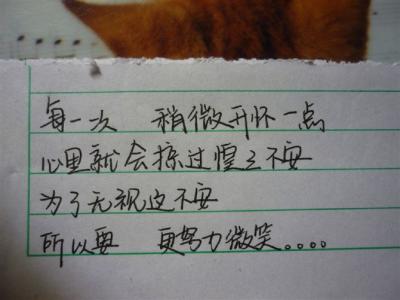 每一次 稍微开怀一点
心里就会掠过惶之不安
为了无视这不安
所以要 更努力微笑。。。。